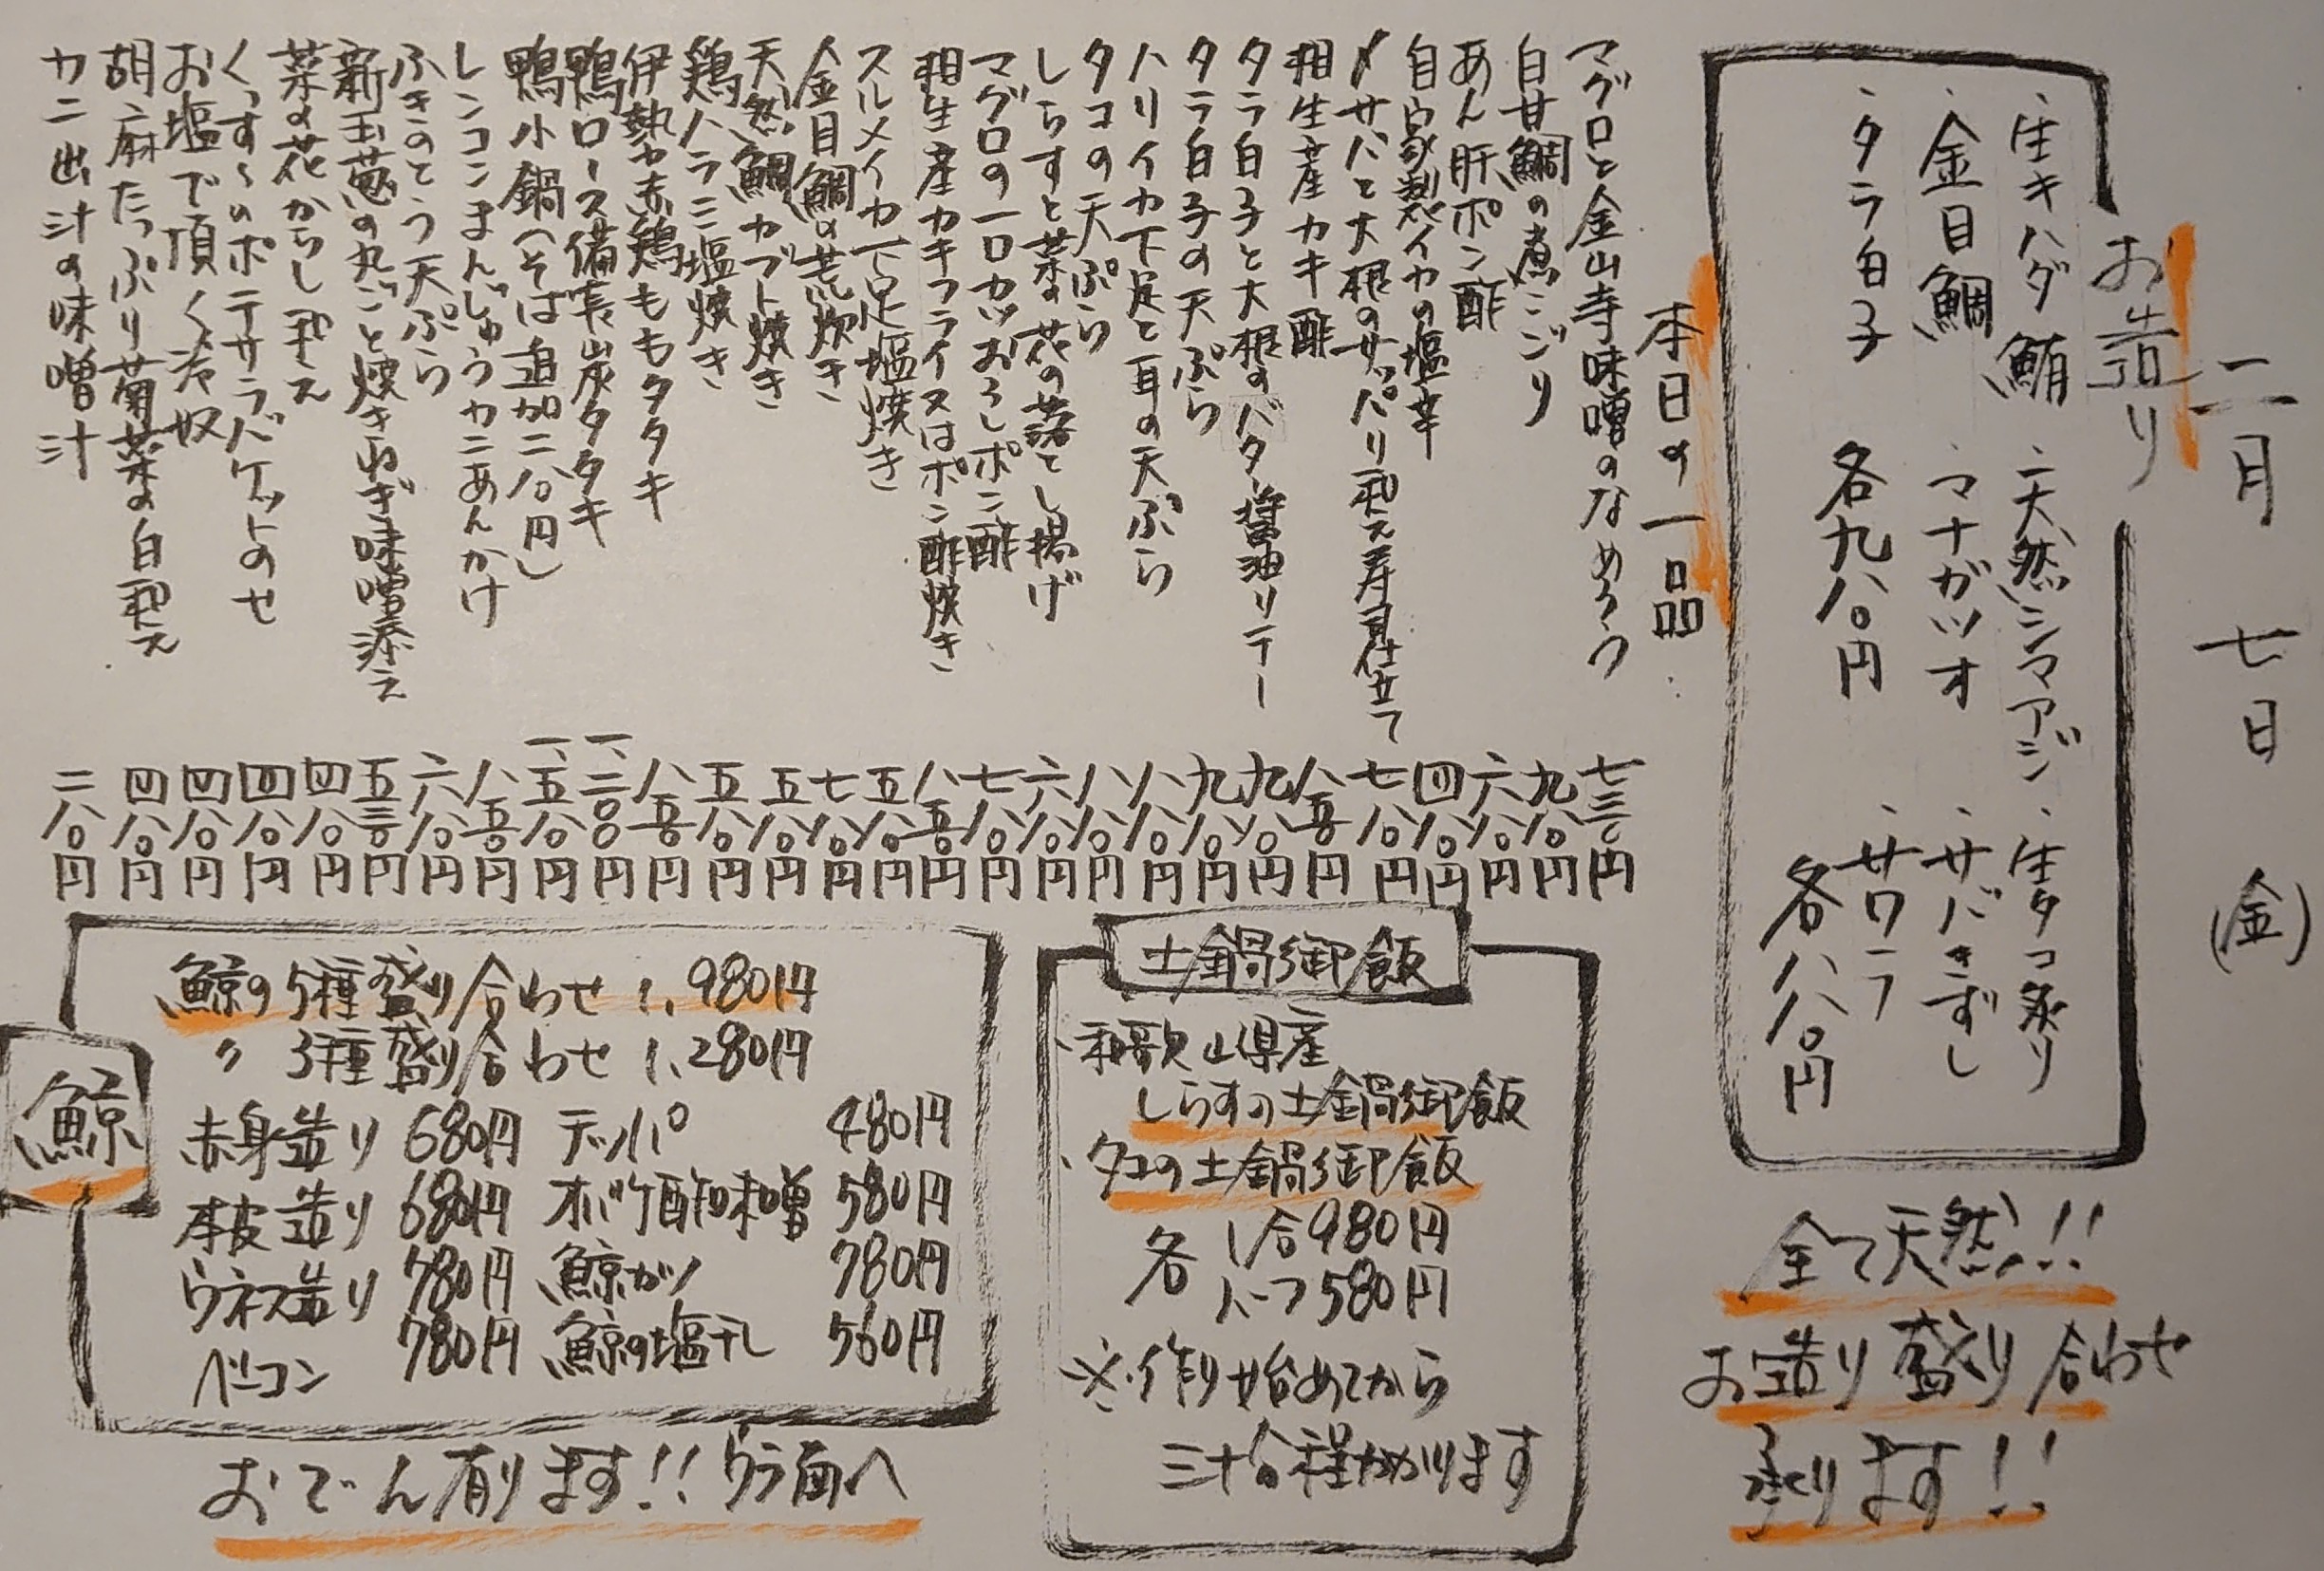 二月 七日 (金)
お造り
・生キハダ鮪 ・天然シマアジ ・生タコ炙り
・金目鯛 ・マナガツオ ・サバきずし
・タラ白子 各九八〇円 ・サワラ 各八八〇円
全て天然!!
お造り盛り合わせ
承ります!!
本日の一品
マグロと金山寺味噌のなめろう 七三〇円
白甘鯛の煮こごり 九八〇円
あん肝ポン酢 六八〇円
自家製イカの塩辛 四八〇円
〆サバと大根のサッパリ和え寿司仕立て 七八〇円
相生産カキ酢 八五〇円
タラ白子と大根のバター醤油ソテー 九八〇円
タラ白子の天ぷら 九八〇円
ハリイカ下足と耳の天ぷら 八八〇円
タコの天ぷら 八八〇円
しらすと菜の花の落とし揚げ 六八〇円
マグロの一口カツおろしポン酢 七八〇円
相生産カキフライ又はポン酢焼き 八五〇円
スルメイカ下足塩焼き 五八〇円
金目鯛の荒炊き 七八〇円
天然鯛カブト焼き 五八〇円
鶏ハラミ塩焼き 五八〇円
伊勢赤鶏ももタタキ 八五〇円
鴨ロース備長炭タタキ 一、二〇〇円
鴨小鍋(そば追加二八〇円) 一、五八〇円
レンコンまんじゅうカニあんかけ 八五〇円
ふきのとう天ぷら 六八〇円
新玉葱の丸ごと焼きねぎ味噌添え 五三〇円
菜の花からし和え 四八〇円
くっすんポテサラバケットのせ 四八〇円
お塩で頂く冷奴 四八〇円
胡麻たっぷり菊菜の白和え 四八〇円
カニ出汁の味噌汁 二八〇円
土鍋御飯
・和歌山県産
しらすの土鍋御飯
・タコの土鍋御飯
各 1合980円
ハーフ580円
※作り始めてから
三十分程かかります
鯨
鯨の5種盛り合わせ 1,980円
〃 3種盛り合わせ 1,280円
赤身造り 680円 テッパ 480円
本皮造り 680円 オバケ酢味噌 580円
ウネス造り 780円 鯨カツ 780円
ベーコン 780円 鯨の塩干し 560円
おでん有ります!!ウラ面へ